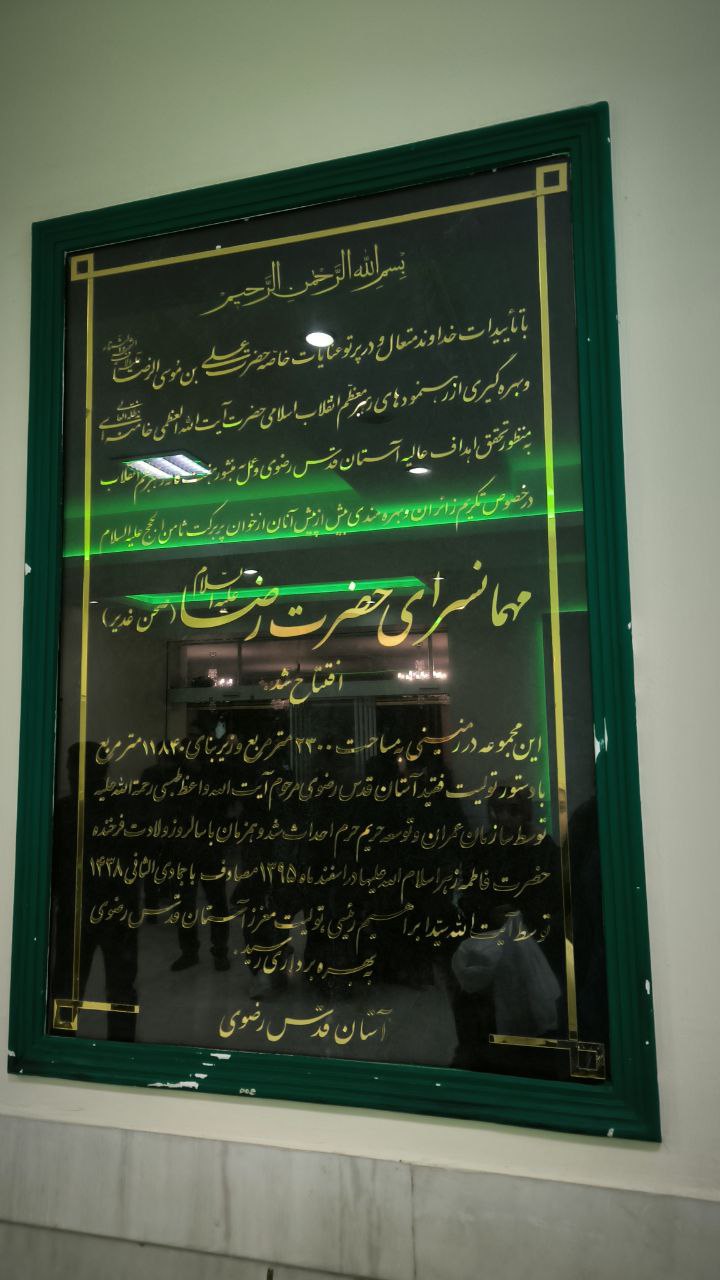 بسم الله الرحمن الرحیم
با تأییدات خداوند متعال و در پرتو عنایات خاصه حضرت علی بن موسی الرضا
و بهره گیری از رهنمودهای رهبر معظم انقلاب اسلامی حضرت آیت الله العظمی خامنه ای
بمنظور تحقق اهداف عالیه آستان قدس رضوی و عمل به منشور هفت ماده رهبر انقلاب
درخصوص تکریم زائران و بهره مندی بیش از پیش آنان از خوان پر برکت ثامن الحجج علیه السلام
مهمانسرای حضرت رضا علیه السلام (صحن غدیر)
افتتاح شد
این مجموعه در زمینی به مساحت ۲۳۰۰ متر مربع و زیربنای ۱۱۸۴۰ متر مربع
با دستور تولیت فقید آستان قدس رضوی مرحوم آیت الله واعظ طبسی رحمة الله علیه
توسط سازمان عمران و توسعه حریم حرم احداث شد و همزمان با سالروز ولادت فرخنده
حضرت فاطمه زهرا سلام الله علیها در اسفند ماه ۱۳۹۵ مصادف با جمادی الثانی ۱۴۳۸
توسط آیت الله سید ابراهیم رئیسی تولیت معزز آستان قدس رضوی
به بهره برداری رسید.
آستان قدس رضوی